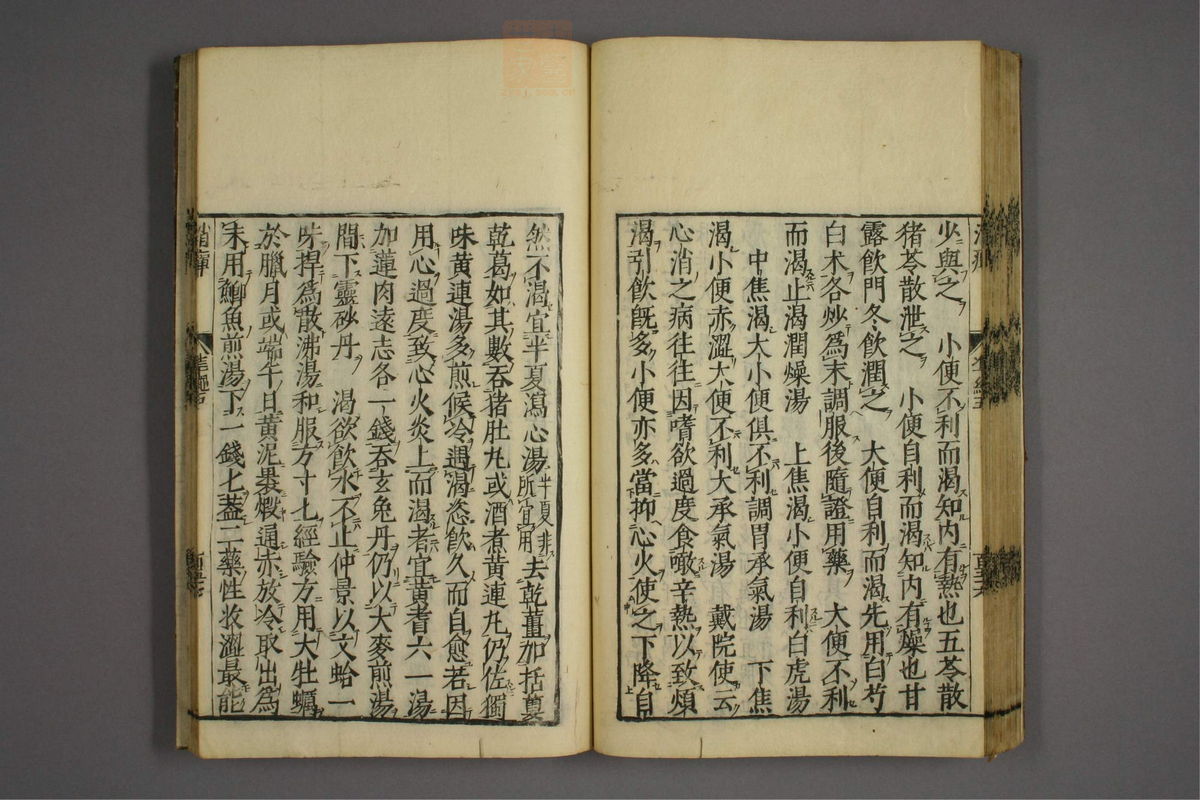 少與之　小便不利而渴知内有熱也五苓散
猪苓散泄之　小便自利而渴知内有燥也甘
露飲門冬飲潤之　大便自利而渴先用白芍
白术各炒爲末調服後隨證用藥　大便不利
而渴止渴潤燥湯　上焦渴小便自利白虎湯
中焦渴大小便俱不利調胃承氣湯　下焦
渴小便赤澀大便不利大承氣湯　戴院使云
心消之病往往因嗜欲過度食噉辛熱以致煩
渴引飲既多小便亦多當抑心火使之下降自
然不渴宜半夏瀉心湯半夏非所宜用去乾薑加栝蔞
乾葛如其數吞猪肚丸或酒煮黄連丸仍佐獨
味黄連湯多煎候冷遇渴恣飲久而自愈若因
用心過度致心火炎上而渴者宜黄耆六一湯
加蓮肉遠志各一錢吞玄兔丹仍以大麥煎湯
間下靈砂丹　渴欲飲水不止仲景以文蛤一
味捍爲散沸湯和服方寸匕經驗方用大牡蠣
於臘月或端午日黄泥裹煅通赤放冷取出爲
末用鯽魚煎湯下一錢匕蓋二藥性收澀最能
消癉